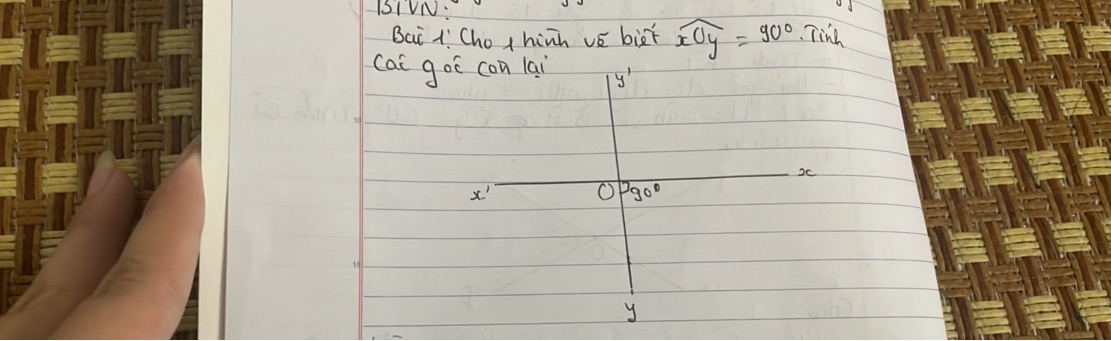 BTVN:
Bài 1: Cho hình vẽ biết xOy = 90°. Tính
các góc còn lại
y'
x'
O
90°
x
y